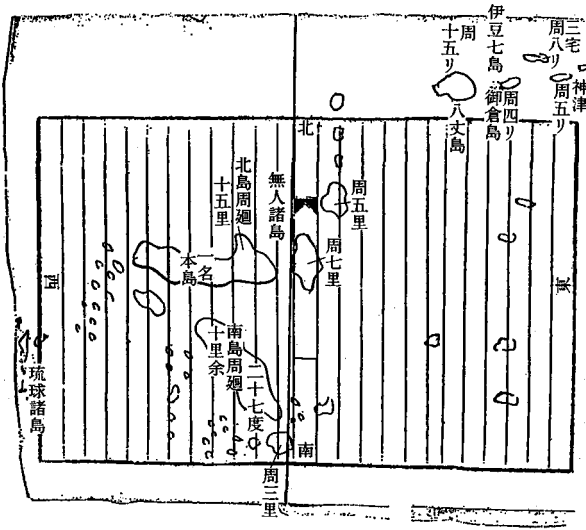 三宅
周八リ
神津
周五リ
伊豆七島
周四リ
御倉島
周
十五リ
八丈島
北
東
周五里
周七里
無人諸島
北島周廻
十五里
一名
本島
西
南島周廻
十里余
二十七度
琉球諸島
南
周三里